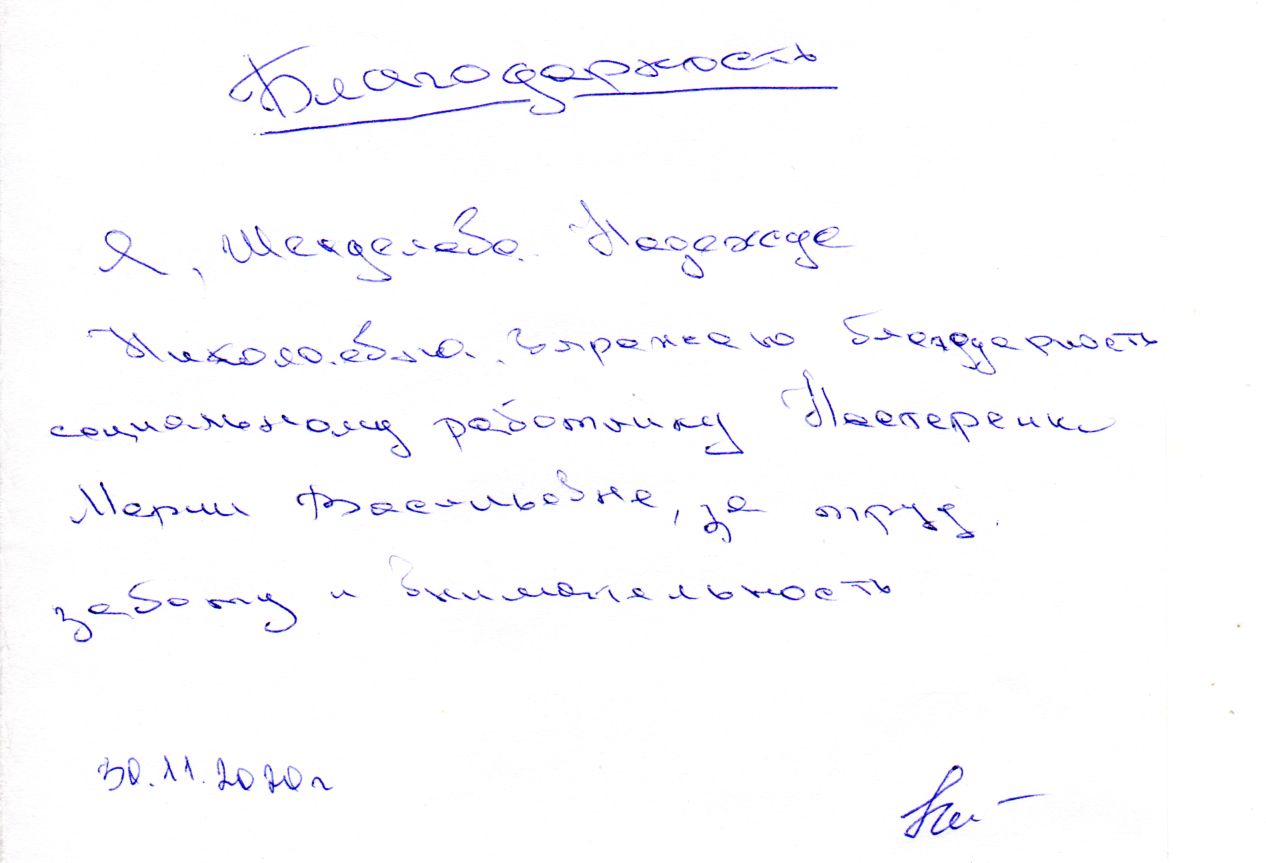 Благодарность
Я, Шенделева Надежда
Николаевна. выражаю благодарность
социальному работнику Настеренко
Марии Васильевне, за труд.
заботу и внимательность
30.11.2020г